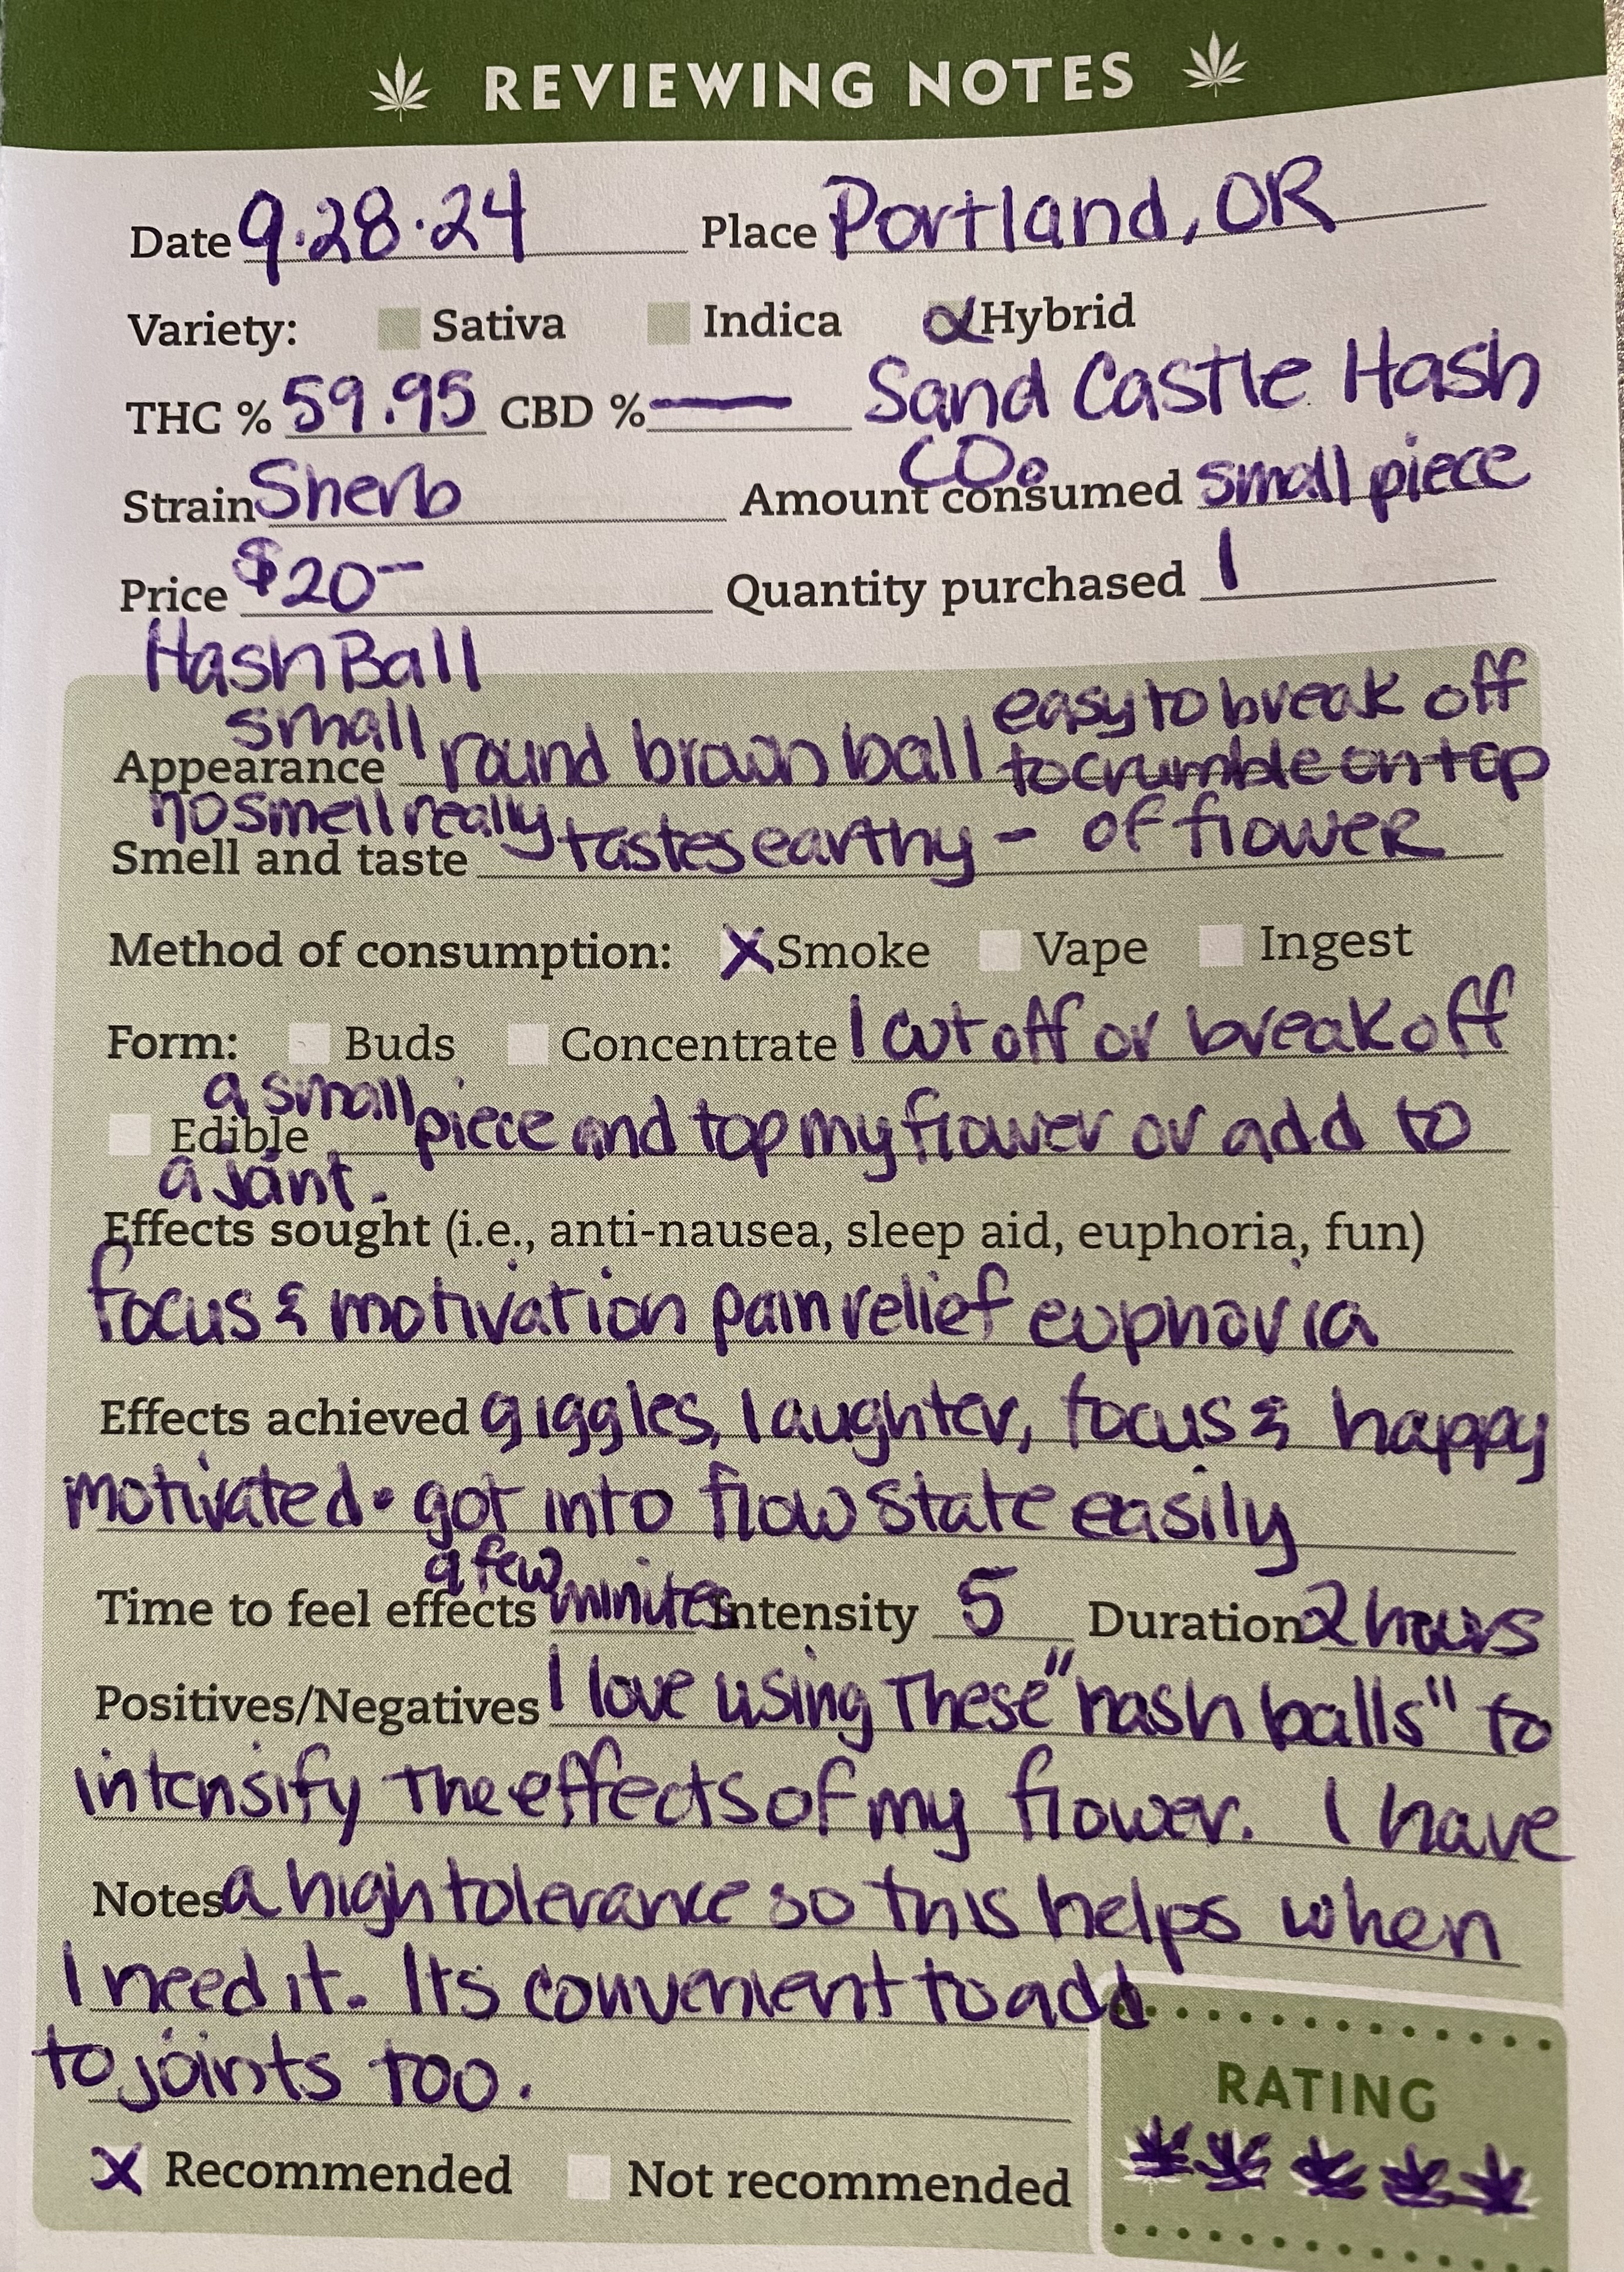 REVIEWING NOTES
Date 9.28.24 Place Portland, OR
Variety: Sativa Indica Hybrid
THC % 59.95 CBD % — Sand Castle Hash
Co.
Strain Sherb Amount consumed small piece
Price $20- Quantity purchased 1
Hash Ball
small easy to break off
Appearance round brown ball to crumble on top
no smell really
Smell and taste tastes earthy - of flower
Method of consumption: X Smoke Vape Ingest
Form: Buds Concentrate I cut off or break off
a small
Edible piece and top my flower or add to
a joint.
Effects sought (i.e., anti-nausea, sleep aid, euphoria, fun)
focus & motivation pain relief euphoria
Effects achieved giggles, laughter, focus & happy
motivated • got into flow state easily
a few
Time to feel effects minutes Intensity 5 Duration 2 hours
Positives/Negatives I love using these "hash balls" to
intensify the effects of my flower. I have
Notes a high tolerance so this helps when
I need it. Its convenient to add
to joints too.
RATING
X Recommended Not recommended